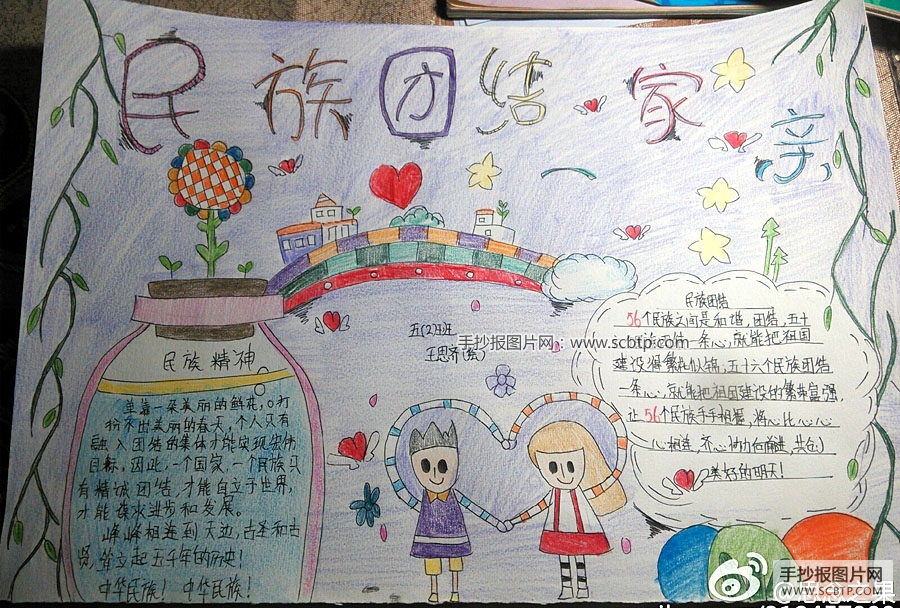 民族团结一家亲
五(2)班
手抄报图片网:
www.scbtp.com
民族精神
单靠一朵美丽的鲜花,打
扮不出美丽的春天,个人只有
融入团结的集体才能实现宏伟
目标,因此,一个国家,一个民族只
有精诚团结,才能自立于世界,
才能谋求进步和发展。
峰峰相连到天边,古圣和古
贤,耸立起五千年的历史!
中华民族!中华民族!
民族团结
56个民族之间是和谐,团结,五十
一条心,就能把祖国
建设得繁花似锦,五十六个民族团结
一条心,就能把祖国建设的繁荣富强,
让56个民族手手相握,将心比心,心
心相连,齐心协力向前进,共创
美好的明天!
手抄报图片网
WWW.SCBTP.COM